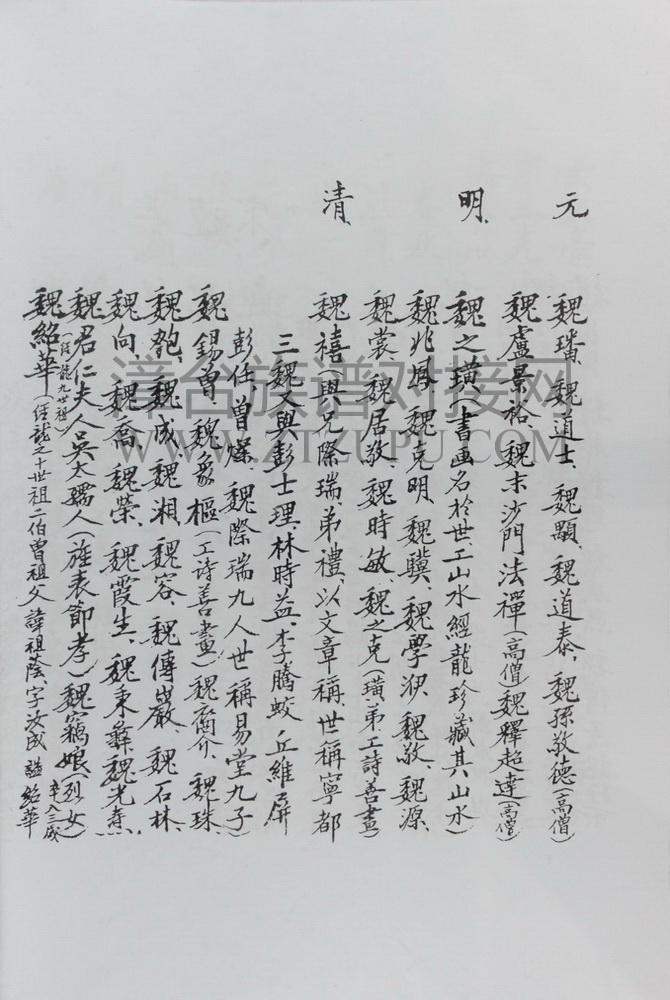 元
魏璠、魏道士、魏顯、魏道泰、魏孫敬德(高僧)
魏盧景裕、魏末沙門法禪(高僧)魏釋超達(高僧)
明
魏之璜(書画名於世、工山水經龍珍藏其山水)
魏兆鳳、魏克明、魏驥、魏學洢、魏敬、魏源、
魏裳、魏居敬、魏時敏、魏之克(璜弟、工詩善畫)
清
魏禧(與兄際瑞、弟禮、以文章稱、世稱寧都
三魏又與彭士理、林時益、李騰蛟、丘維屏
彭任、曾燦、魏際瑞九人世稱易堂九子)
魏錫曾、魏象樞(工詩善畫)魏裔介、魏珠、
魏匏、魏成、魏湘、魏容、魏傳嚴、魏石林、
魏向、魏喬、魏榮、魏霞生、魏秉彝、魏光燾、
魏君仁夫人吳太孺人(旌表節孝)魏窩娘(烈女)
(經龍九世祖)
魏紹華(經龍之十世祖二伯曾祖父諱祖蔭、字汝成 諡紹華
卒八三歲
澤合族谱对接网
WWW.ZTZUPU.COM